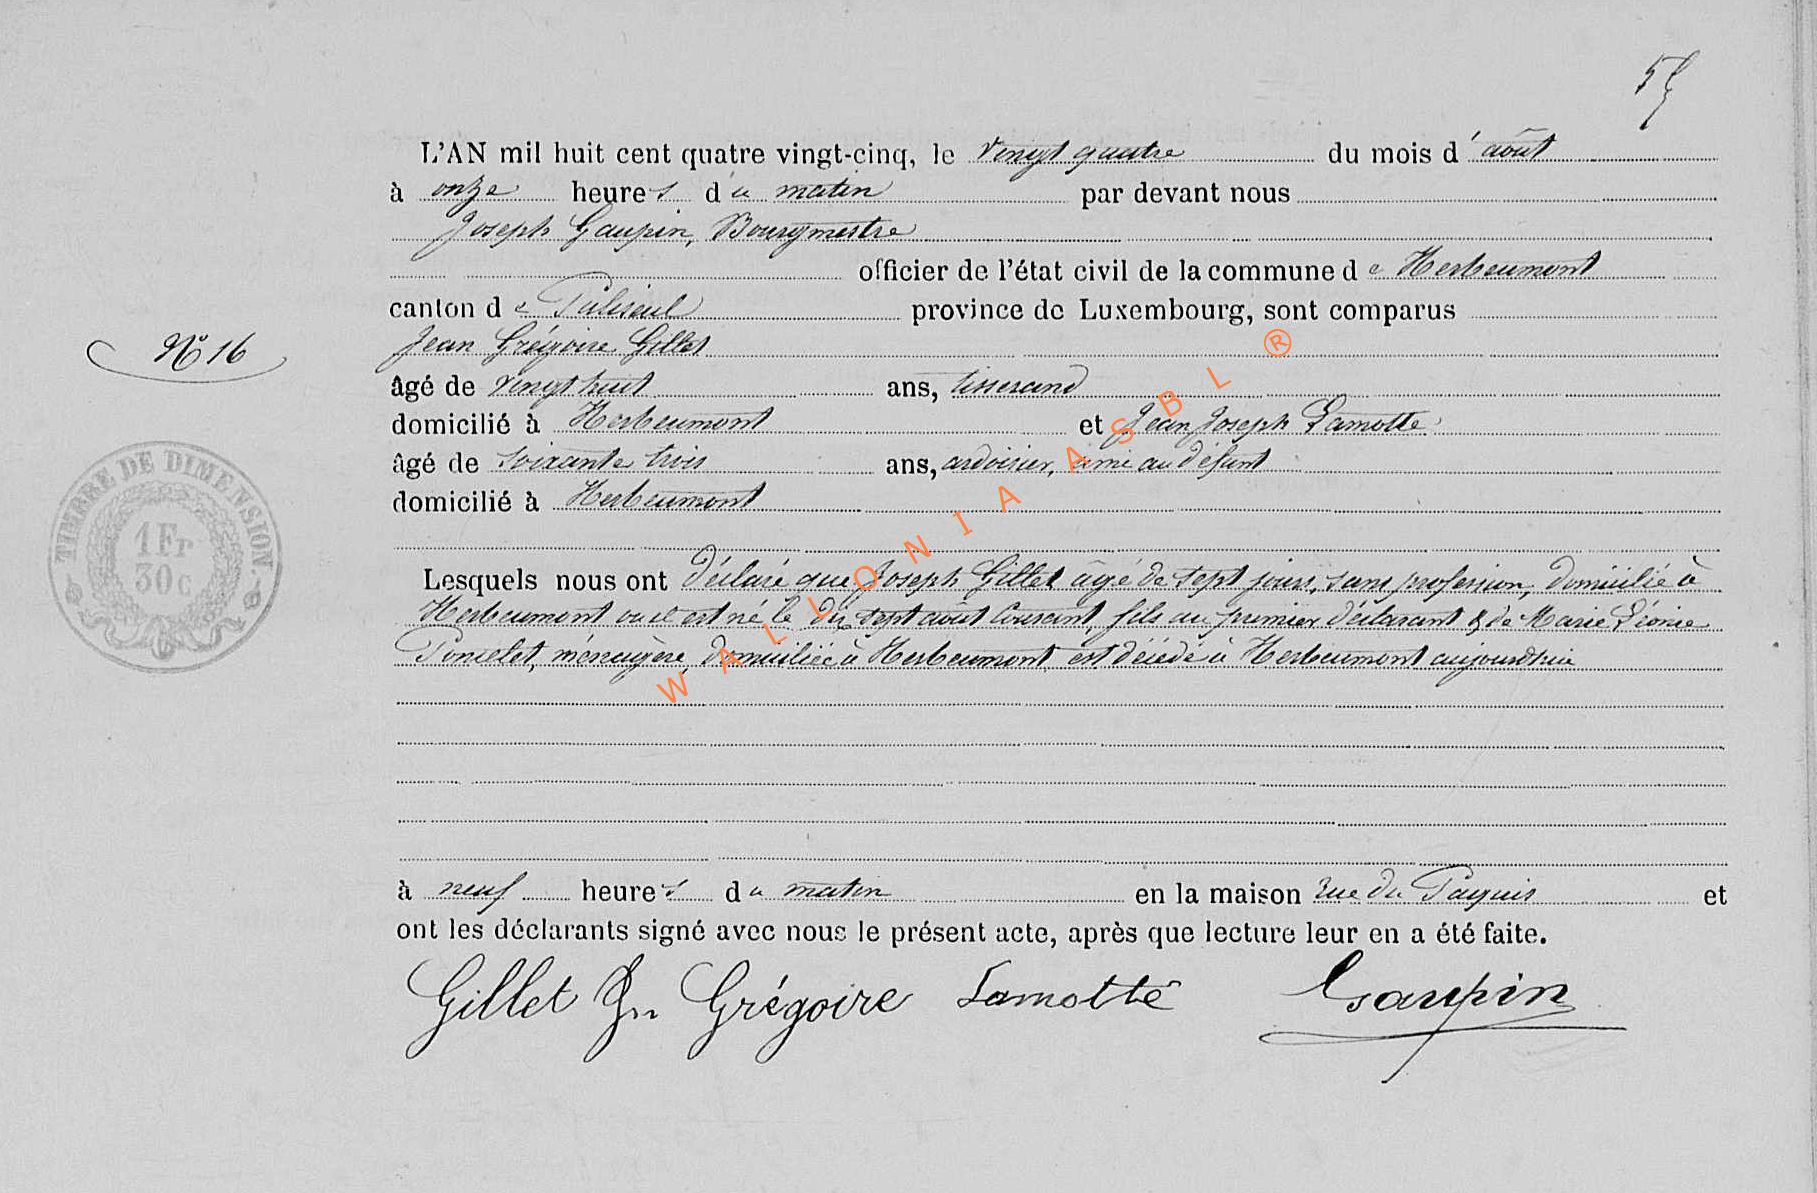 57
L'AN mil huit cent quatre vingt-cinq, le vingt quatre du mois d'août
à onze heures du matin par devant nous
Joseph Gaupin, Bourgmestre
officier de l'état civil de la commune de Herbeumont
canton de Paliseul province de Luxembourg, sont comparus
N° 16
Jean Grégoire Gillet
âgé de vingt huit ans, tisserand
domicilié à Herbeumont et Jean Joseph Lamotte
âgé de soixante trois ans, ardoisier, ami au défunt
domicilié à Herbeumont
TIMBRE DE DIMENSION
1 Fr
30 c
Lesquels nous ont déclaré que Joseph Gillet âgé de sept jours, sans profession, domicilié à
Herbeumont où il est né le dix sept août courant, fils au premier déclarant & de Marie Léonie
Poncelet, ménagère, domiciliée à Herbeumont, est décédé à Herbeumont aujourd'hui
à neuf heures du matin en la maison rue du Paquis et
ont les déclarants signé avec nous le présent acte, après que lecture leur en a été faite.
Gillet Jn Grégoire Lamotte Gaupin
WALLONIA ASBL ®